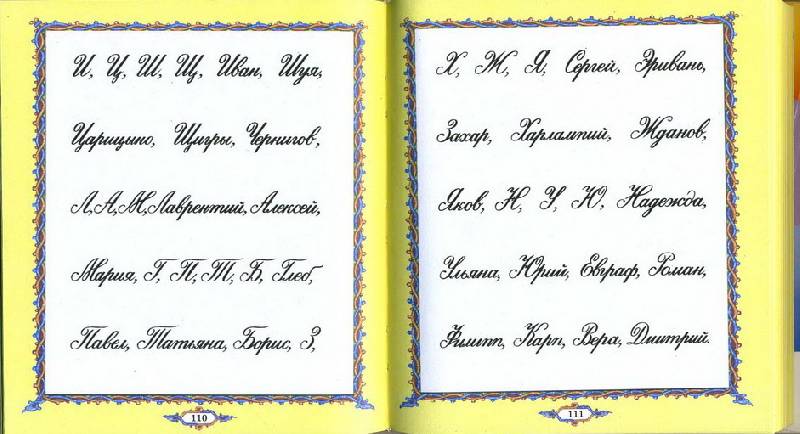 И, Ц, Ш, Щ, Иван, Шуя,
Царицыно, Щигры, Чернигов,
Л, А, М, Лаврентий, Алексей,
Мария, Г, П, Т, Б, Глеб,
Павел, Татьяна, Борис, З,
110
Х, Ж, Я, Сергей, Эривань,
Захар, Харлампий, Жданов,
Яков, Н, У, Ю, Надежда,
Ульяна, Юрий, Евграф, Роман,
Филипп, Карп, Вера, Дмитрий.
111